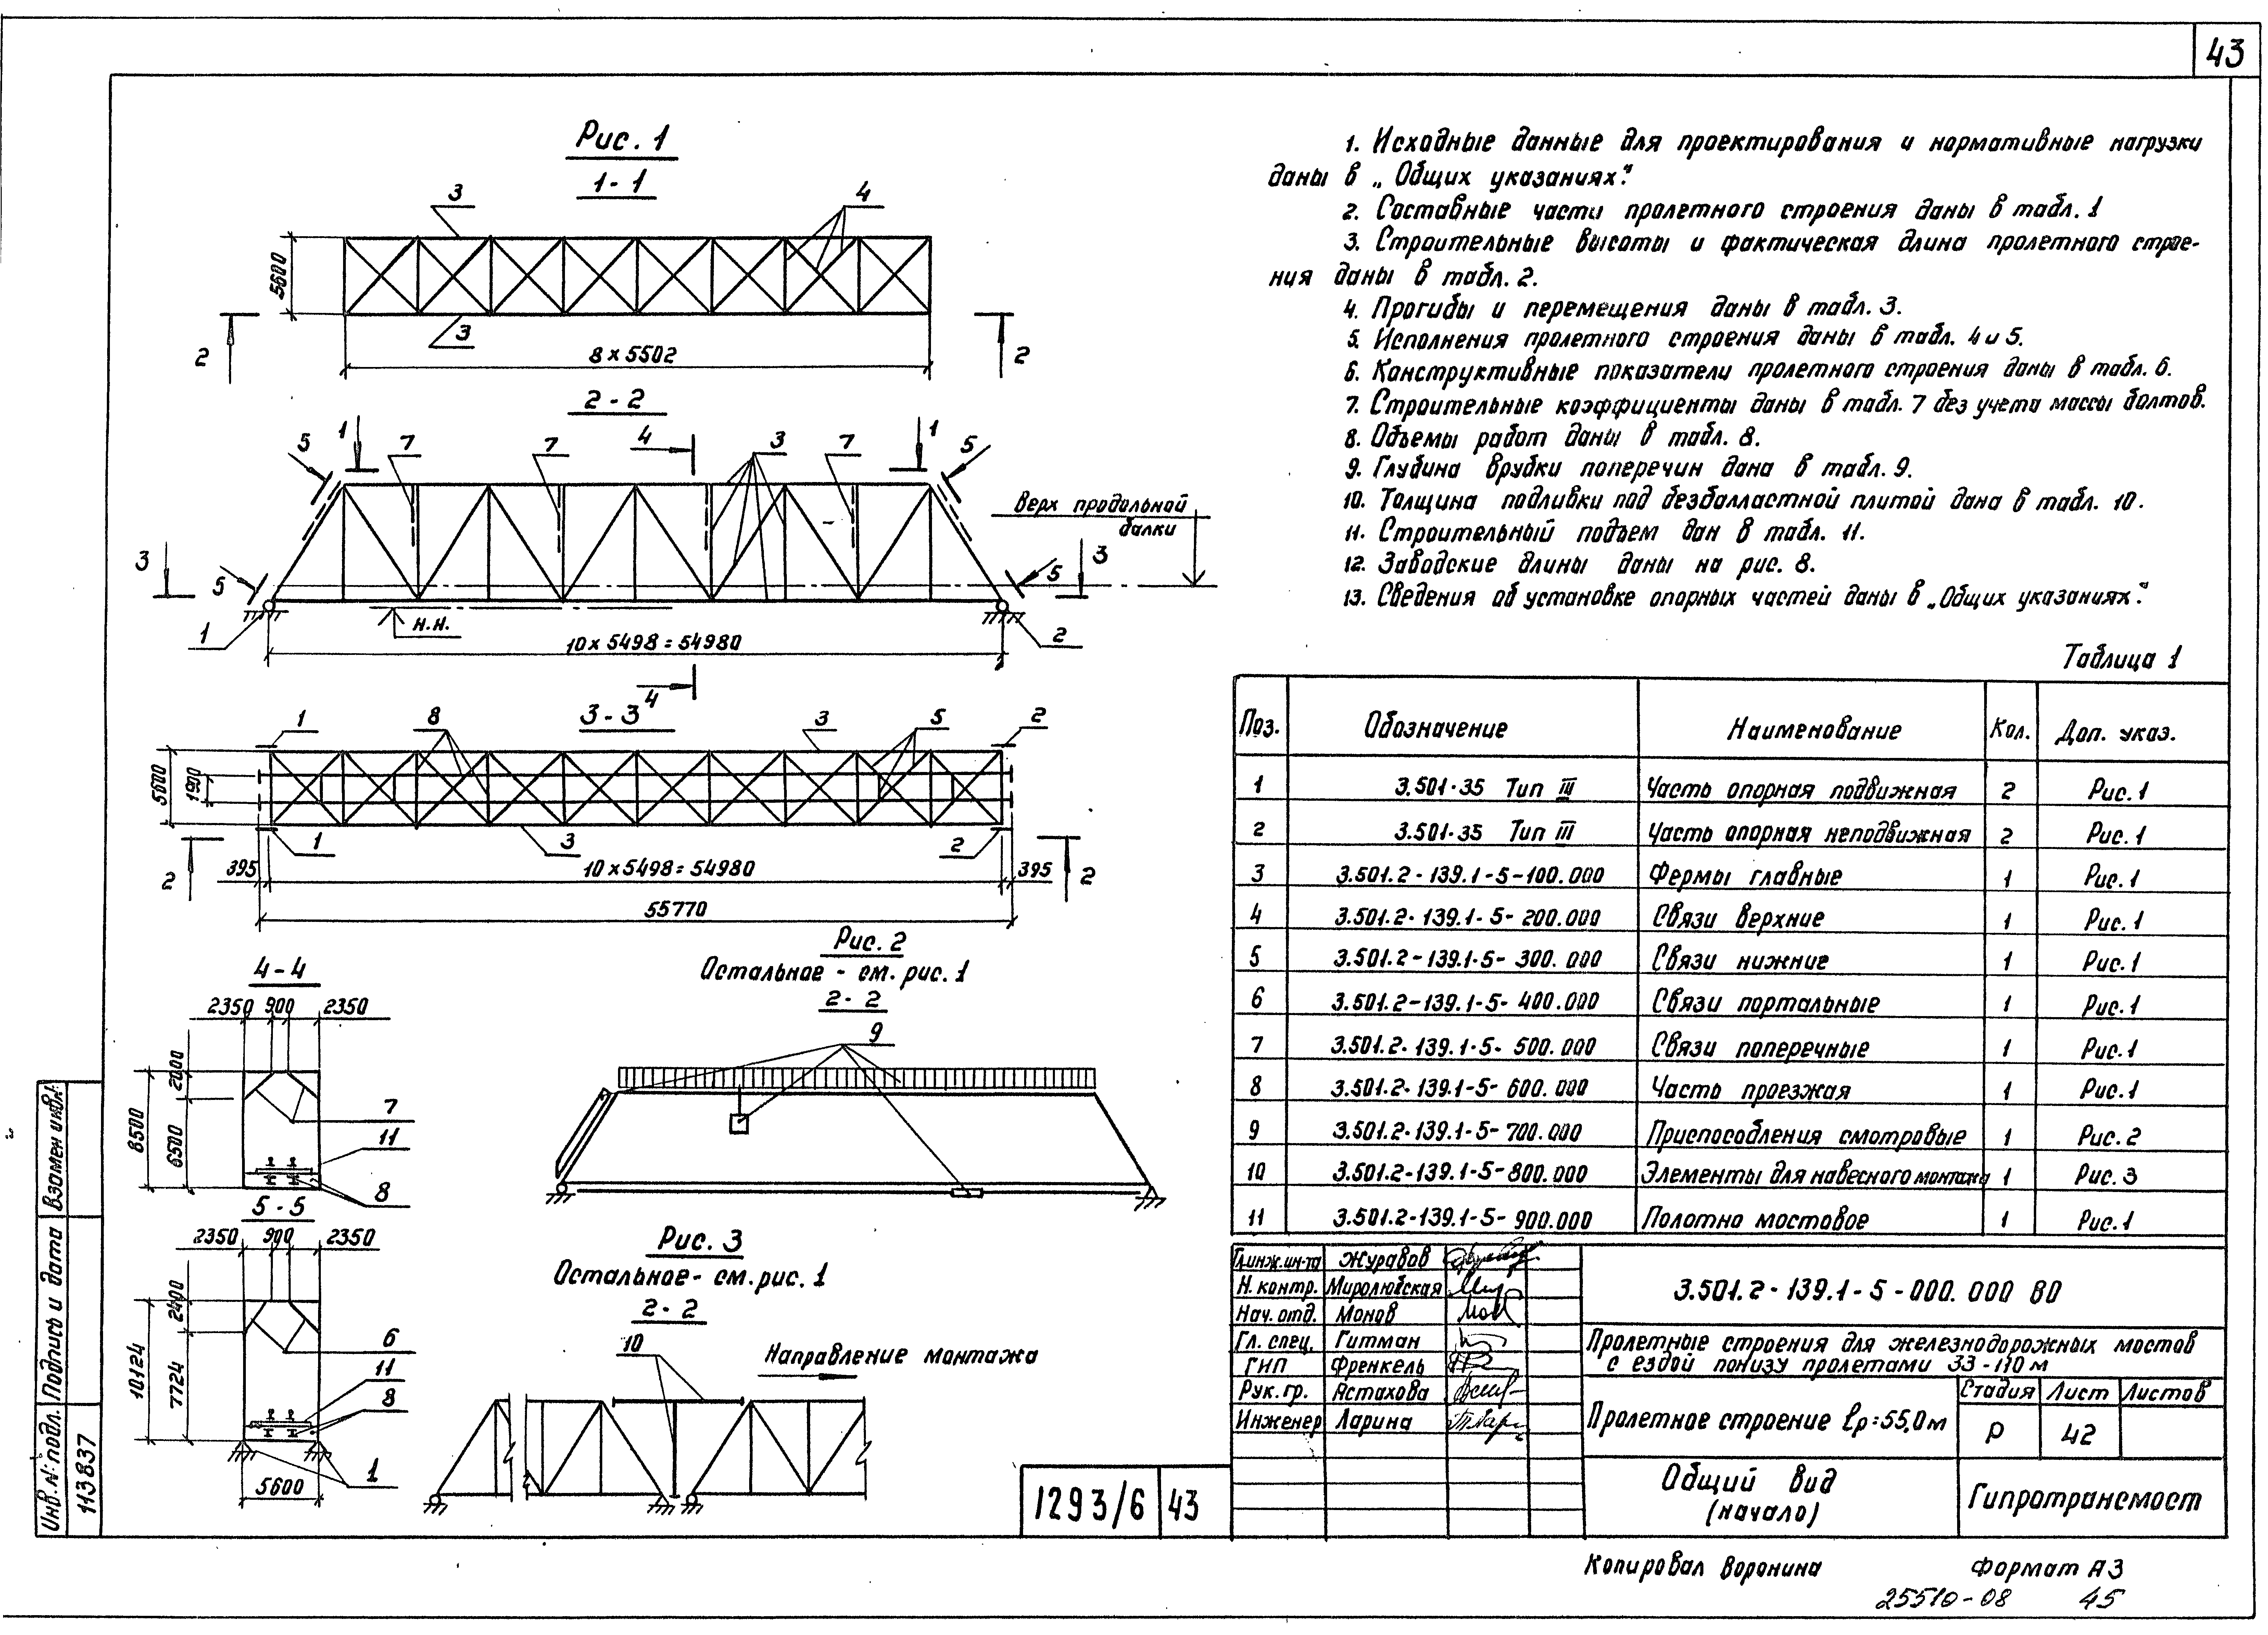 43
Рис. 1
1-1
3
4
5600
3
2
2
8 × 5502
2-2
5
1
7
7
4
3
7
1
5
верх продольной
балки
3
5
5
3
1
н.н.
2
10 × 5498 = 54980
4
3-3
1
8
3
5
2
5600
1900
1
3
2
2
395
10 × 5498 = 54980
395
2
55770
Рис. 2
Остальное - см. рис. 1
2-2
9
4-4
2350 900 2350
2000
8500
6500
7
11
8
5-5
2350 900 2350
2400
10124
7724
6
11
8
1
5600
Рис. 3
Остальное - см. рис. 1
2-2
10
Направление монтажа
1. Исходные данные для проектирования и нормативные нагрузки
даны в „Общих указаниях".
2. Составные части пролетного строения даны в табл. 1
3. Строительные высоты и фактическая длина пролетного строе-
ния даны в табл. 2.
4. Прогибы и перемещения даны в табл. 3.
5. Исполнения пролетного строения даны в табл. 4 и 5.
6. Конструктивные показатели пролетного строения даны в табл. 6.
7. Строительные коэффициенты даны в табл. 7 без учета массы болтов.
8. Объемы работ даны в табл. 8.
9. Глубина врубки поперечин дана в табл. 9.
10. Толщина подливки под безбалластной плитой дана в табл. 10.
11. Строительный подъем дан в табл. 11.
12. Заводские длины даны на рис. 8.
13. Сведения об установке опорных частей даны в „Общих указаниях".
Таблица 1
Поз. Обозначение Наименование Кол. Доп. указ.
1 3.501-35 Тип III Часть опорная подвижная 2 Рис. 1
2 3.501-35 Тип III Часть опорная неподвижная 2 Рис. 1
3 3.501.2-139.1-5-100.000 Фермы главные 1 Рис. 1
4 3.501.2-139.1-5-200.000 Связи верхние 1 Рис. 1
5 3.501.2-139.1-5-300.000 Связи нижние 1 Рис. 1
6 3.501.2-139.1-5-400.000 Связи портальные 1 Рис. 1
7 3.501.2-139.1-5-500.000 Связи поперечные 1 Рис. 1
8 3.501.2-139.1-5-600.000 Часть проезжая 1 Рис. 1
9 3.501.2-139.1-5-700.000 Приспособления смотровые 1 Рис. 2
10 3.501.2-139.1-5-800.000 Элементы для навесного монтажа 1 Рис. 3
11 3.501.2-139.1-5-900.000 Полотно мостовое 1 Рис. 1
Гл.инж.ин-та Журавов
Н. контр. Миролюбская
Нач. отд. Монов
Гл. спец. Гитман
ГИП Френкель
Рук. гр. Астахова
Инженер Ларина
3.501.2-139.1-5-000.000 ВО
Пролетные строения для железнодорожных мостов
с ездой понизу пролетами 33-110 м
Пролетное строение lр=55,0м
Стадия Лист Листов
Р 42
Общий вид
(начало)
Гипротрансмост
1293/6 43
Инв. N: подл. Подпись и дата Взамен инв.N:
113837
Копировал Воронина
Формат А3
25510-08 45